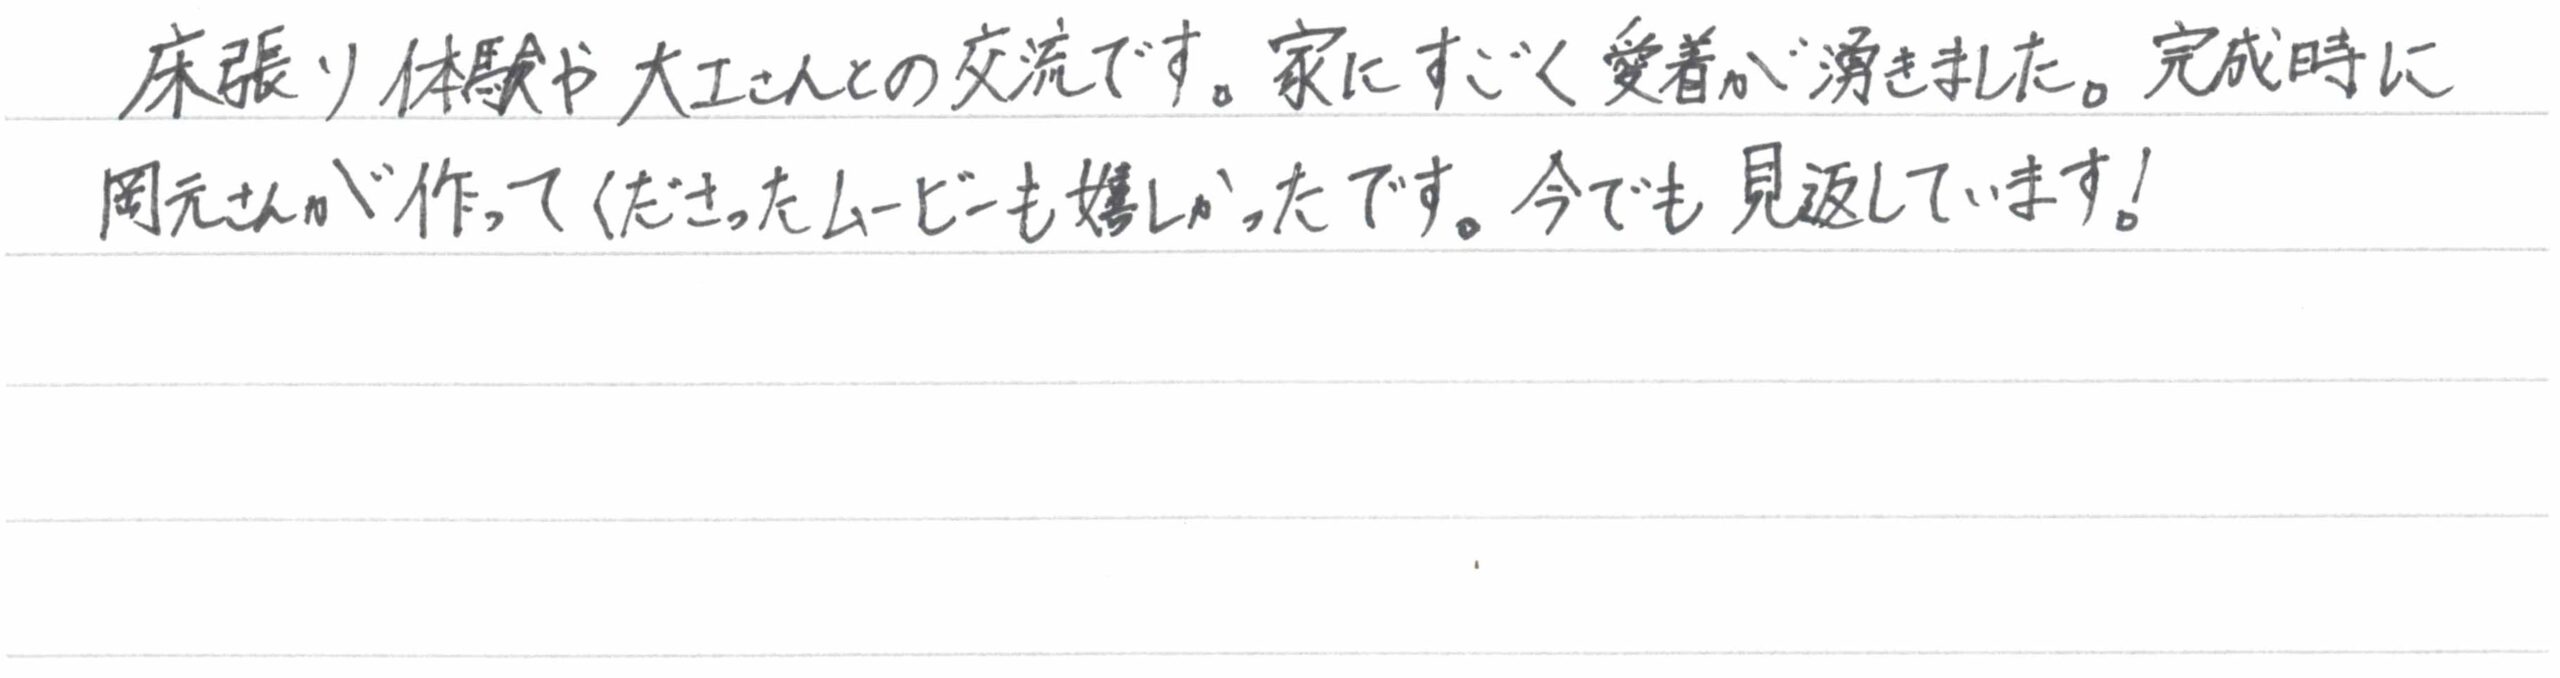 床張り体験や大工さんとの交流です。家にすごく愛着が湧きました。完成時に
岡元さんが作ってくださったムービーも嬉しかったです。今でも見返しています!